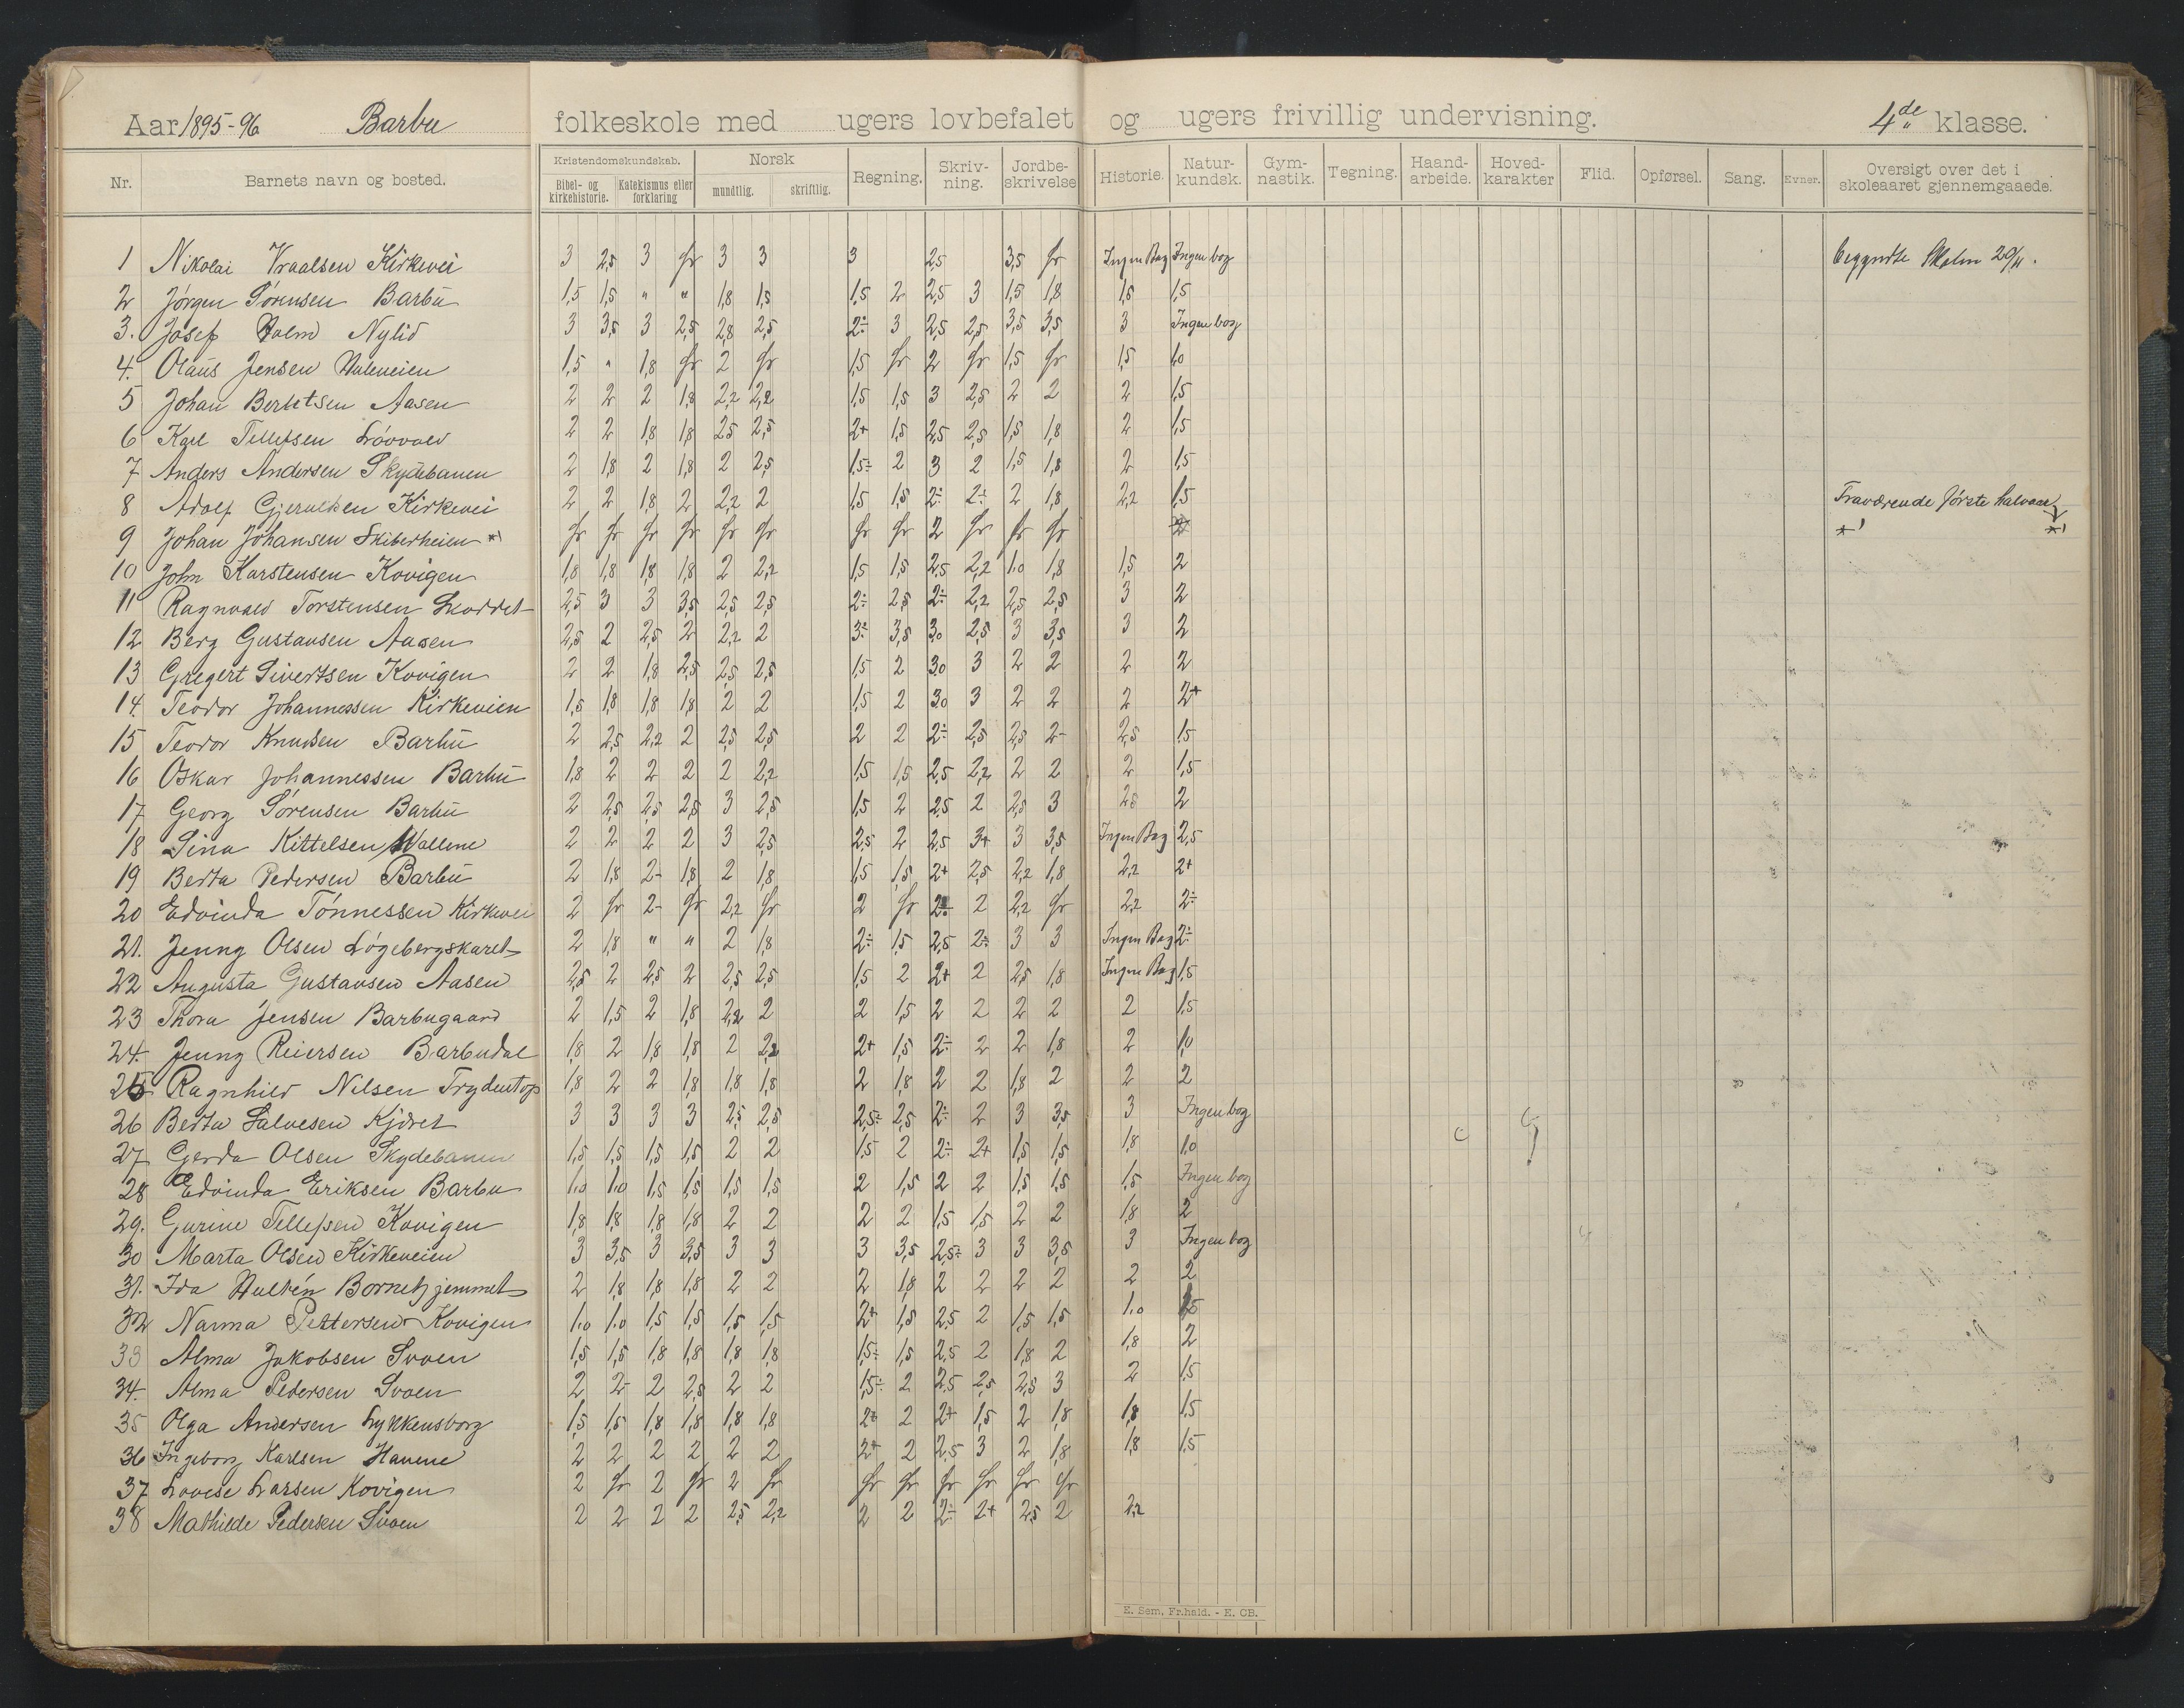 Aar 1895-96 Barbu folkeskole med ugers lovbefalet og ugers frivillig undervisning. 4de klasse.
Nr. Barnets navn og bosted. Kristendomskundskab. Bibel- og kirkehistorie. Katekismus eller forklaring Norsk mundtlig. skriftlig. Regning. Skriv-ning. Jordbe-skrivelse Historie. Natur-kundsk. Gym-nastik. Tegning. Haand-arbeide. Hoved-karakter Flid. Opførsel. Sang. Evner. Oversigt over det i skoleaaret gjennemgaaede.
1 Nikolai Vraalsen Kirkevei 3 2,5 3 fr 3 3 3 2,5 3,5 fr Ingen Bog Ingen bog begyndte Skolen 20/11.
2 Jørgen Sørensen Barbu 1,5 1,5 " " 1,8 1,5 1,5 2 2,5 3 1,5 1,8 1,5 1,5
3. Josef Holm Nylid 3 3,5 3 2,5 2,8 2,5 2÷ 3 2,5 2,5 3,5 3,5 3 Ingen bog
4. Olaus Jensen 1,5 " 1,8 fr 2 fr 1,5 fr 2 fr 1,5 fr 1,5 1,0
5 Johan Berntsen Aasen 2 2 2 1,8 2,2 2,2 1,5 1,5 3 2,5 2 2 2 1,5
6 Karl Tellefsen 2 2 1,8 1,8 2,5 2,5 2+ 1,5 2,5 2,5 1,5 1,8 2 1,5
7 Anders Andersen Skydebanen 2 1,8 2 1,8 2 2,5 1,5÷ 2 3 2 1,5 1,8 2 1,5
8 Adolf Gjerulfsen Kirkevei 2 2 1,8 2 2,2 2 1,5 1,5 2÷ 2÷ 2 1,8 2,2 1,5 Fraværende første halvaar
9 Johan Johansen Skiberheien *) fr fr fr fr fr fr fr fr 2 fr fr fr *) *)
10 John Karstensen Kovigen 1,8 1,8 1,8 1,8 2 2,2 1,5 1,5 2,5 2,2 1,0 1,8 1,5 2
11 Ragnvald Torstensen 2,5 3 3 3,5 2,5 2,5 2÷ 2,5 2÷ 2,2 2,5 2,5 3 2
12 Berg Gustavsen Aasen 2,5 2 2,5 2 2,2 2 3÷ 3,5 3,0 2,5 3 3,5 3 2
13 Gregert Sivertsen Kovigen 2 2 1,8 2,5 2,5 2,5 1,5 2 3,0 3 2 2 2 2
14. Teodor Johannessen Kirkeveien 1,5 1,8 1,8 1,8 2 2 1,5 2 3,0 3 2 2 2 2+
15 Teodor Knudsen Barbu 2 2,5 2,2 2 2,5 2,5 2 2 2÷ 2,5 2,5 2- 2,5 1,5
16 Oskar Johannessen Barbu 1,8 2 2 2 2 2,2 1,5 1,5 2,5 2,2 2 2 2 1,5
17 Georg Sørensen Barbu 2 2,5 2,5 2,5 3 2,5 1,5 2 2,5 2 2,5 3 2,5 2
18 Sina Kittelsen Vallene 2 2 2 2 3 2,5 2,5 2 2,5 3+ 3 3,5 Ingen Bog 2,5
19 Berta Pedersen Barbu 2 1,8 2- 1,8 2 1,8 1,5 1,5 2+ 2,5 2,2 1,8 2,2 2+
20 Edvinda Tønnessen Kirkevei 2 fr 2- fr 2,2 fr 2 fr 2÷ 2 2,2 fr 2,2 2÷
21. Jenny Olsen Løgebergskaret 2 1,8 " " 2 1,8 2÷ 1,5 2,5 2÷ 3 3 Ingen Bog 2÷
22 Augusta Gustavsen Aasen 2,5 2 2,5 2 2,5 2,5 1,5 2 2+ 2 2,5 1,8 Ingen Bog 1,5
23 Thora Jensen Barbugaard 2 1,5 2 1,8 2,2 2 2 1,5 2 2 2 2 2 1,5
24. Jenny Reiersen Barbudal 1,8 2 1,8 1,8 2 2,2 2+ 1,5 2÷ 2 2 1,8 2 1,0
25 Ragnhild Nilsen Frydentop 1,8 2 2 1,8 1,8 1,8 2 1,8 2 2 1,8 2 2 2
26 Berta Salvesen Kjøret 3 3 3 3 2,5 2,5 2,5÷ 2,5 2÷ 2 3 3,5 3 Ingen bog
27 Gerda Olsen Skydebanen 1,5 1,5 1,5 1,5 2 2 1,5 2 2÷ 2+ 1,5 1,5 1,8 1,0
28 Edvinda Eriksen Barbu 1,0 1,0 1,5 1,5 1,5 1,5 2 1,5 2 2 1,5 1,5 1,5 Ingen bog
29. Gurine Tellefsen Kovigen 1,8 1,8 1,8 1,8 2 2 2 2 1,5 1,5 2 2 1,8 2
30 Marta Olsen Kirkeveien 3 3,5 3 3,5 3 3 3 3,5 2,5÷ 3 3 3,5 3 Ingen bog
31. Ida Hultén Bornehjemmet 2 1,8 1,8 1,8 2 2 2 1,8 2 2 2 2 2 2
32 Narma Pettersen Kovigen 1,0 1,0 1,5 1,5 1,5 1,5 2+ 1,5 2,5 2 1,5 1,5 1,0 1,5
33 Alma Jakobsen Svoen 1,5 1,5 1,8 1,8 1,8 1,8 1,5÷ 1,5 2,5 2 1,8 2 1,8 2
34. Alma Pedersen Svoen 2 2- 2 2,5 2 2 1,5÷ 2 2,5 2,5 2,5 3 2 1,5
35 Olga Andersen Lykkensborg 1,5 1,5 1,8 1,8 1,8 1,8 2+ 2 2+ 1,5 2 1,8 1,8 1,5
36 Ingeborg Karlsen Havene 2 2 2 2 2 2 2+ 2 2,5 3 2 1,8 1,8 1,5
37 Lovese Larsen Kovigen 2 fr 2 fr 2 fr fr fr fr fr fr fr
38 Mathilde Pedersen Svoen 2 2 2 2 2,5 2,2 2 2 2÷ 2+ 2,5 2 2,2
E. Sem, Fr.hald. - E. OB.